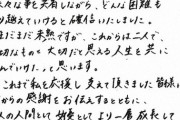 々な事を共有しながら、どんな困難も
り越えていけると確信いたしました。
まだまだ未熟ですが、これからは二人で、
切なものを大切だと思える人生を共に
んでいけたら、と思います。
これまで私を応援し支えて頂きました皆様に
からの感謝をお伝えするとともに、
人の人間として、役者としてより一層成長して